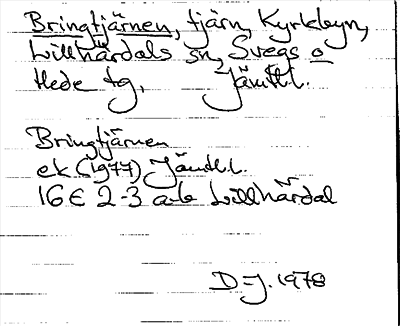 Bringtjärnen, tjärn, Kyrkbyn,
Lillhärdals sn, Svegs o
Hede tg, Jämtl.
Bringtjärnen
ek (1977) Jämtl.l.
16E 2-3 a-b Lillhärdal
D-J. 1978